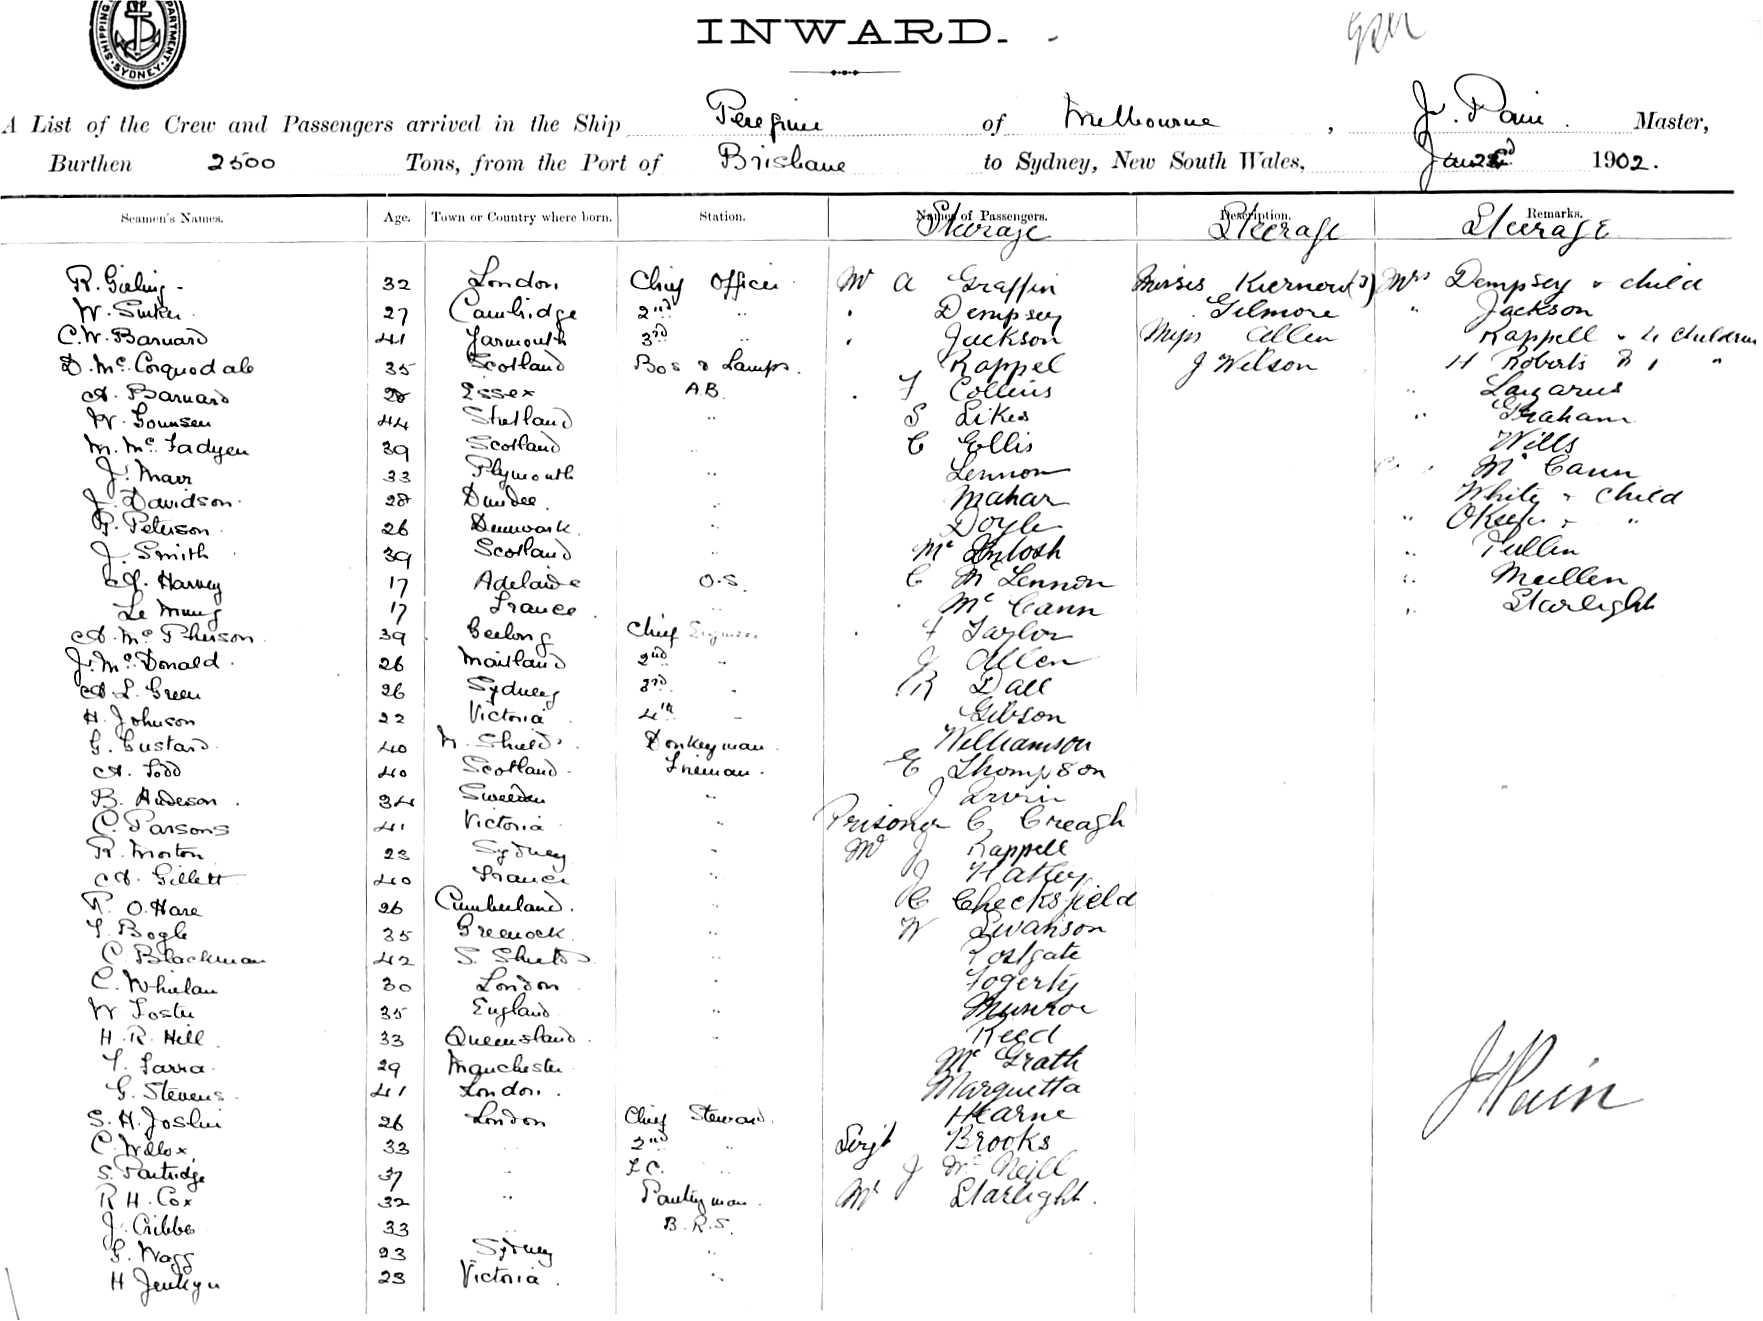 SHIPPING DEPARTMENT. SYDNEY.
INWARD.
A List of the Crew and Passengers arrived in the Ship Peregrine of Melbourne, J. Pain. Master,
Burthen 2500 Tons, from the Port of Brisbane to Sydney, New South Wales, Jan 1902.
Seamen's Names. Age. Town or Country where born. Station. Names of Passengers. Description. Remarks.
Steerage Steerage Steerage
32 London Chief Officer Mr A Graffin Misses (3) Mrs Dempsey & child
27 Cambridge 2nd " Dempsey Gilmore " Jackson
C. W. Barnard 41 Yarmouth 3rd " Jackson Miss Allen Rappell & 4 children
D. Mc Corquodale 35 Scotland Bos & Lamps. Rappel J Wilson H Roberts "
A. Barnard 28 Essex A.B. F Collins " Lazarus
W. 44 Shetland " S Sikes " Graham
M. Mc Fadyen 39 Scotland C Ellis Wills
J. Marr 33 Plymouth " Lennon Mc Cann
J. Davidson 28 Dundee " Mahar White & child
Peterson 26 Denmark " Doyle " "
J. Smith 39 Scotland " Mc Intosh " Pullen
Harvey 17 Adelaide O.S. C Mc Lennon " Mullen
Le 17 France " Mc Cann " Starlight
A. Mc Pherson 39 Geelong Chief Engineer Taylor
J. Mc Donald 26 Maitland 2nd " J Allen
A. L. Green 26 Sydney 3rd " R Dall
H. Johnson 22 Victoria 4th " Gibson
G. Gustard 40 N. Shields Donkeyman Williamson
A. Todd 40 Scotland Fireman E Thompson
B. Anderson 34 Sweden " J Irvin
C. Parsons 41 Victoria " Prisoner C. Creagh
R. Morton 23 Sydney " Mr J Rappell
A. Gillett 40 France " J Hatley
R. O. Hare 26 Cumberland. " C Checksfield
T. Bogle 35 Greenock " W Swanson
C. Blackman 42 S. " Postgate
C. Whelan 30 London " Fogerty
W Foster 35 England " Munroe
H. R. Hill 33 Queensland " Reed
T. Farra 29 Manchester Mc Grath
G. Stevens 41 London. Marquetta
S. H. Joslin 26 London Chief Steward. Hearne
C. Wilcox 33 " 2nd " Sergt Brooks
S. Partridge 37 F.C. " J Mc Neill
R H. Cox 32 " Pantryman Mr Starlight
J. Cribbs 33 " B.R.S.
Wagg 23 Sydney "
H Jenkyn 23 Victoria "
J Pain